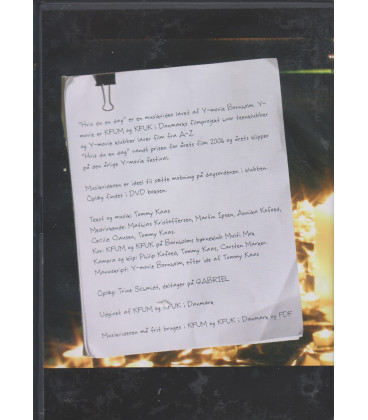 "Hvis du en dag" er en musikvideo lavet af Y-movie Bornholm. Y-
movie er KFUM og KFUK i Danmarks filmprojekt hvor teenklubber
og Y-movie klubber laver film fra A-Z.
"Hvis du en dag" vandt prisen for årets film 2006 og årets klipper
på den årlige Y-movie festival.
Musikvideoen er ideel til sætte mobning på dagsordenen i klubben.
Oplæg findes i DVD boksen.
Tekst og musik: Tommy Kaas
Medvirkende: Mathias Kristoffersen, Martin Ipsen, Annika Kofoed,
Cecilie Clausen, Tommy Kaas
Kor: KFUM og KFUK på Bornholms børneklub Multi Mag
Kamera og klip: Philip Kofoed, Tommy Kaas, Carsten
Manuscript: Y-movie Bornholm, efter ide af Tommy Kaas
Oplæg: Trine Schmidt, deltager på GABRIEL
Udgivet af KFUM og KFUK i Danmark
Musikvideoen må frit bruges i KFUM og KFUK i Danmark og FDF